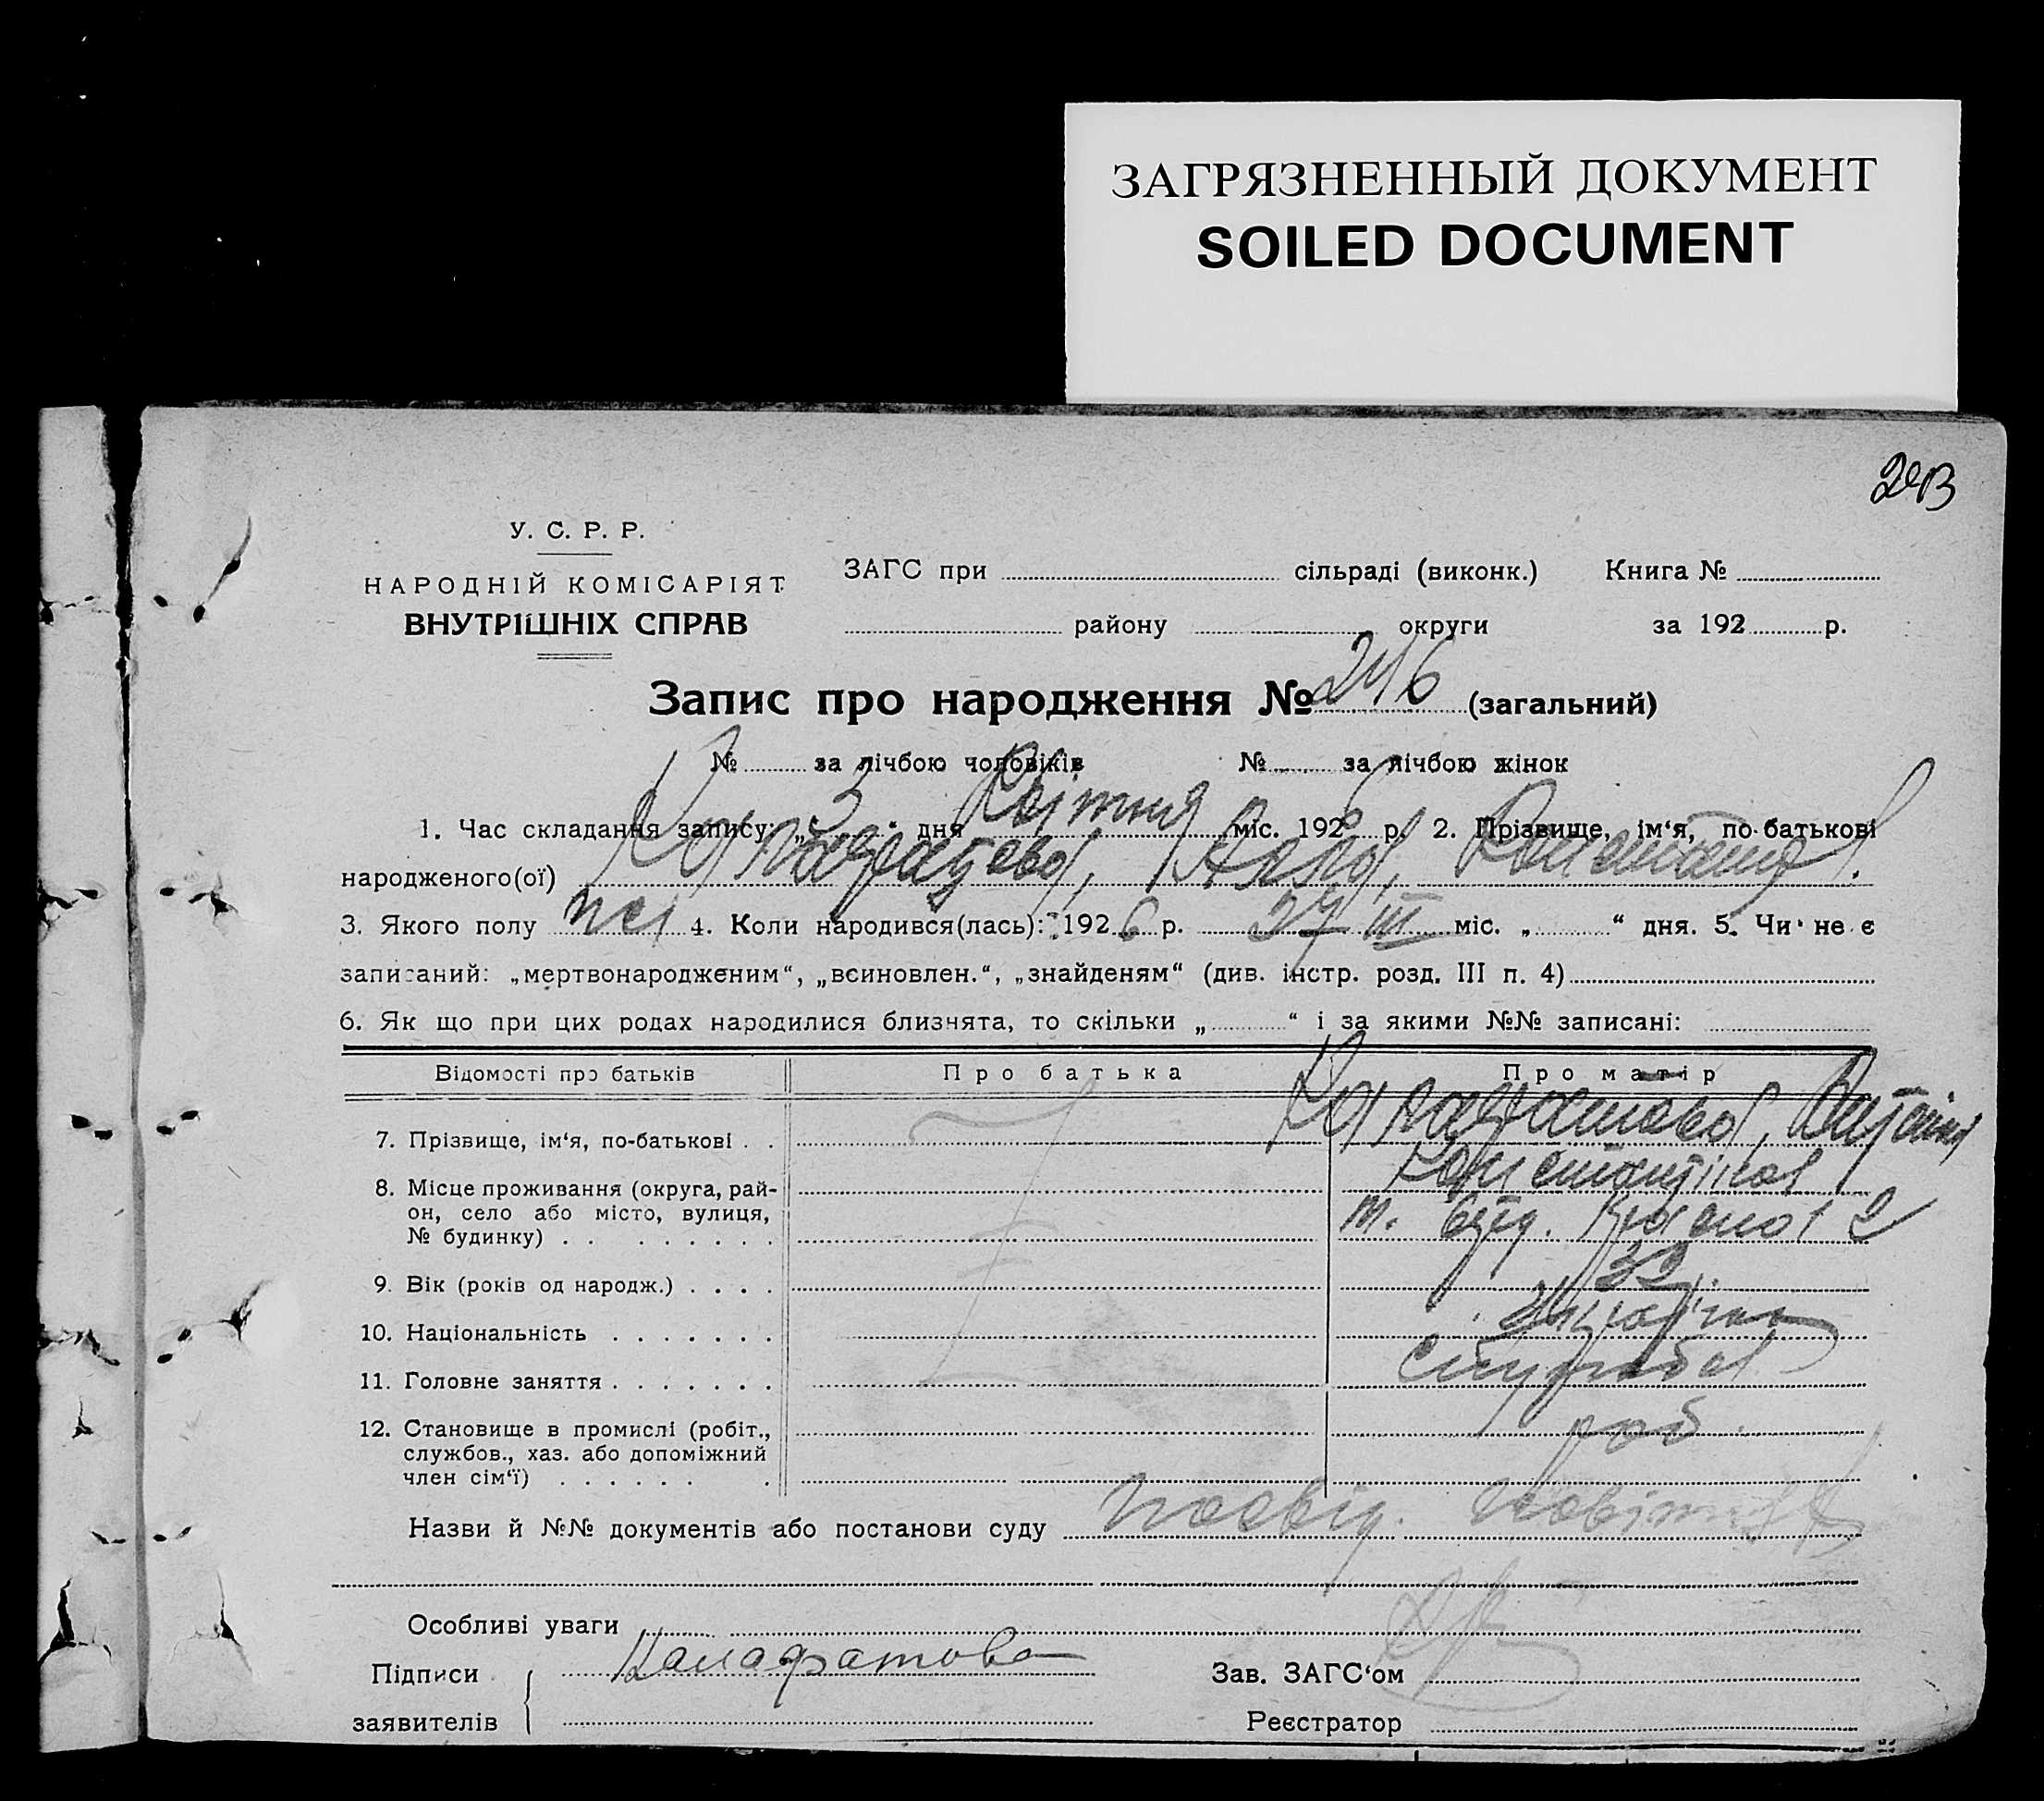 ЗАГРЯЗНЕННЫЙ ДОКУМЕНТ
SOILED DOCUMENT
У. С. Р. Р.
НАРОДНІЙ КОМІСАРІЯТ
ВНУТРІШНІХ СПРАВ
ЗАГС при сільраді (виконк.) Книга №
району округи за 192 р.
Запис про народження № 246 (загальний)
№ за лічбою чоловіків № за лічбою жінок
1. Час складання запису: „3“ дня Квітня міс. 1926 р. 2. Прізвище, ім‘я, по-батькові
народженого(ої)
3. Якого полу 4. Коли народився(лась): 1926 р. 27 III міс. „ “ дня. 5. Чи не є
записаний: „мертвонародженим“, „всиновлен.“, „знайденям“ (див. інстр. розд. III п. 4)
6. Як що при цих родах народилися близнята, то скільки „ “ і за якими №№ записані:
Відомості про батьків Про батька Про матір
7. Прізвище, ім‘я, по-батькові . .
8. Місце проживання (округа, рай-
он, село або місто, вулиця,
№ будинку) . . . . . . . . 2
9. Вік (років од народж.) . . . . 32
10. Національність . . . . . . .
11. Головне заняття . . . . . . .
12. Становище в промислі (робіт., роб.
службов., хаз. або допоміжний
член сім‘ї) . . . . . . .
Назви й №№ документів або постанови суду посвід.
Особливі уваги
Підписи Калафатова Зав. ЗАГС‘ом
заявителів Реєстратор